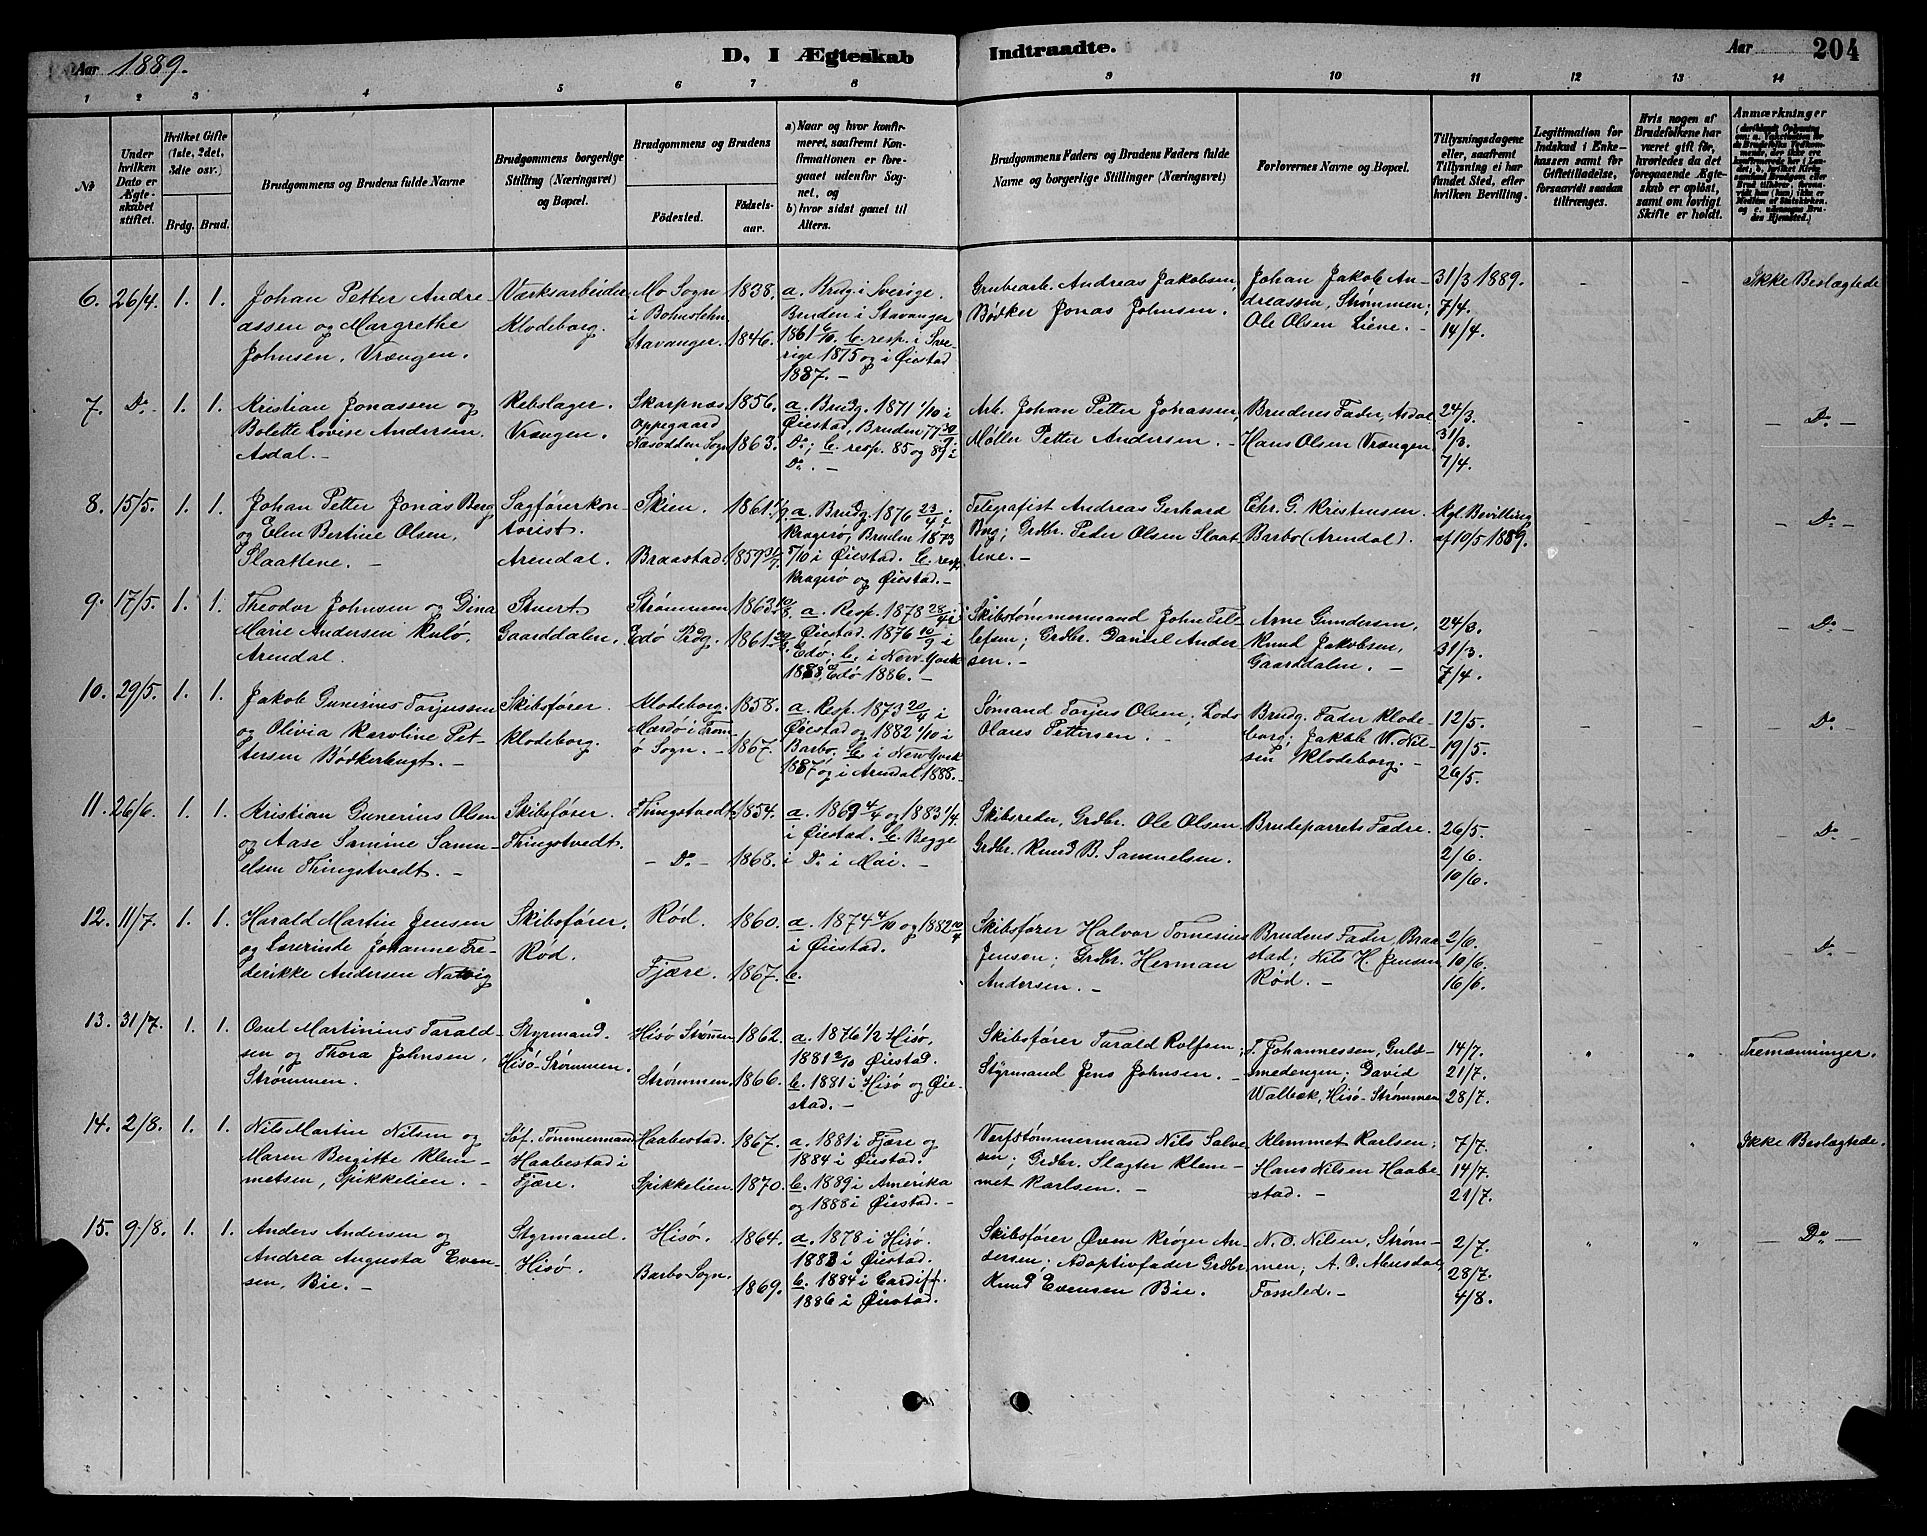 Aar 1889.
D, I Ægteskab
Indtraadte.
Aar
204
1 2 3 4 5 6 7 8 9 10 11 12 13 14
№
Under hvilken Dato er Ægteskabet stiftet.
Hvilket Gifte (1ste, 2det, 3die osv.)
Brdg. Brud.
Brudgommens og Brudens fulde Navne
Brudgommens borgerlige Stilling (Næringsvei) og Bopæl.
Brudgommens og Brudens
Födested.
Födselsaar.
a) Naar og hvor konfirmeret, saafremt Konfirmationen er foregaaet udenfor Sognet, og
b) hvor sidst gaaet til Alters.
Brudgommens Faders og Brudens Faders fulde Navne og borgerlige Stillinger (Næringsvei)
Forlovernes Navne og Bopæl.
Tillysningsdagene eller, saafremt Tillysning ei har fundet Sted, efter hvilken Bevilling.
Legitimation for Indskud i Enkekassen samt for Giftetilladelse, forsaavidt saadan tiltrænges.
Hvis nogen af Brudefolkene har været gift før, hvorledes da det foregaaende Ægteskab er oplöst, samt om lovligt Skifte er holdt.
Anmærkninger
6. 26/4. 1. 1.
Johan Petter Andre
assen og Margrethe
Johnsen, Vrængen.
Værksarbeider
Klodeborg.
Mo Sogn
i Bohuslehn.
Stavanger.
1838.
1846.
a. Brdg. i Sverige.
Bruden i Stavanger
1861 6/10. b. resp. i Sve-
rige 1875 og i Øiestad
1887. —
Grubearb. Andreas Jakobsen,
Bødker Jonas Johnsen.
Johan Jakob An-
dreassen, Strømmen;
Ole Olsen Liene. —
31/3 1889.
7/4.
14/4.
Ikke Beslægtede
7. Do. 1. 1.
Kristian Jonassen og
Bolette Lovise Andersen.
Asdal. —
Rebslager.
Vrængen.
Skarpnæs
Oppegaard
Næsodden Sogn
1856.
1863.
a. Brudg. 1871 1/10 i
Øiestad, Bruden 77 30/9 i
Do; b. resp. 85 og 89 i
Do. —
Arb. Johan Petter Johassen,
Møller Petter Andersen. —
Brudens Fader, Asdal
Hans Olsen Vrængen
24/3.
31/3.
7/4.
— Do —
8. 15/5. 1. 1.
Johan Petter Jonas Berg
og Elen Bertine Olsen,
Slaattene. —
Sagførerkon-
torist.
Arendal.
Skien.
Braastad.
1861
1859
a. Brudg. 1876 23/4 i
Kragerø, Bruden 1873
5/10 i Øiestad. b. resp.
Kragerø og Øiestad. —
Telegrafist Andreas Gerhard
Berg; Grdbr. Peder Olsen Slaat
tene. —
Chr. G. Kristensen.
Barbo (Arendal).
Kgl. Bevilling
af 10/5 1889.
— Do —
9. 17/5. 1. 1.
Theodor Johnsen og Dina
Marie Andersen Kulø,
Arendal.
Stuert.
Gaarddalen.
Strømmen
Edø Prdg.
1863
1861
a. Resp. 1878 28/4 i
Øiestad. 1876 10/9 i
Edø. b. i New-York
1888, Edø 1886. —
Skibstømmermand John Tel-
lefsen; Grdbr. Daniel Ander
sen. —
Arne Gundersen,
Knud Jakobsen,
Gaarddalen. —
24/3.
31/3.
7/4.
— Do —
10. 29/5. 1. 1.
Jakob Gunerius Torjussen
og Olivia Karoline Pet-
tersen Bødkerbugt. —
Skibsfører.
Klodeborg.
Klodeborg.
Mærdø i Trom-
ø Sogn. —
1858.
1867.
a. Resp. 1873 20/4 i
Øiestad og 1882 1/10 i
Barbo. b. i New York
1887 og i Arendal 1888. —
Sømand Torjus Olsen, Lods
Olaus Pettersen. —
Brudg. Fader Klode-
borg; Jakob W. Nil-
sen, Klodeborg. —
12/5.
19/5.
26/5.
— Do —
11. 26/6. 1. 1.
Kristian Gunerius Olsen
og Aase Samine Samu-
elsen Thingstvedt. —
Skibsfører.
Thingstvedt.
Thingstvedt.
— Do —
1854.
1868.
a. 1869 4/4 og 1883 1/4.
i Øiestad. b. Begge
i Do i Mai. —
Skibsreder, Grdbr. Ole Olsen
Grdbr. Knud B. Samuelsen.
Brudeparrets Fædre.
26/5.
2/6.
10/6.
— Do —
12. 11/7. 1. 1.
Harald Martin Jensen
og Lærerinde Johanne Fre-
derikke Andersen Natvig
Skibsfører.
Rød.
Rød.
Fjære.
1860.
1867.
a. 1874 4/10 og 1882 10/4
i Øiestad.
b.
Skibsfører Halvor Tomesius
Jensen; Grdbr. Herman
Andersen. —
Brudens Fader, Braa-
stad; Nils H. Jensen
Rød. —
2/6.
10/6.
16/6.
— Do —
13. 31/7. 1. 1.
Osul Martinius Tarald-
sen og Thora Johnsen.
Strømmen.
Styrmand.
Hisø-Strømmen.
Hisø Strømmen
Strømmen.
1862.
1866.
a. 1876 1/2 Hisø,
1881 2/10 Øiestad.
b. 1881 i Hisø og Øie-
stad. —
Skibsfører Tarald Rolfsen;
Styrmand Jens Johnsen. —
T. Johannessen, Guld-
smedengen; David
Walbek, Hisø-Strømmen
14/7.
21/7.
28/7.
Tremænninger.
14. 2/8. 1. 1.
Nils Martin Nilsen og
Maren Bergitte Klem-
metsen, Spikkelien. —
Søf. Tømmermand
Haabestad i
Fjære.
Haabestad.
Spikkelien.
1867.
1870.
a. 1881 i Fjære og
1884 i Øiestad.
b. 1889 i Amerika
og 1888 i Øiestad. —
Verfstømmermand Nils Salve
sen; Grdbr. Slagter Klem-
met Karlsen. —
Klemmet Karlsen;
Hans Nilsen Haabe
stad. —
7/7.
14/7.
21/7.
Ikke Beslægtede.
15. 9/8. 1. 1.
Anders Andersen og
Andrea Augusta Even-
sen, Bie. —
Styrmand.
Hisø.
Hisø.
Barbo Sogn.
1864.
1869.
a. 1878 i Hisø.
1883 i Øiestad.
b. 1884 i Cardiff.
1886 i Øiestad.
Skibsfører Ørem Krøger An-
dersen; Adoptivfader Grdbr.
Knud Evensen Bie.
N. O. Nilsen, Strøm-
men; A. O. Ausdal,
Fosseled. —
2/7.
28/7.
4/8.
— Do —